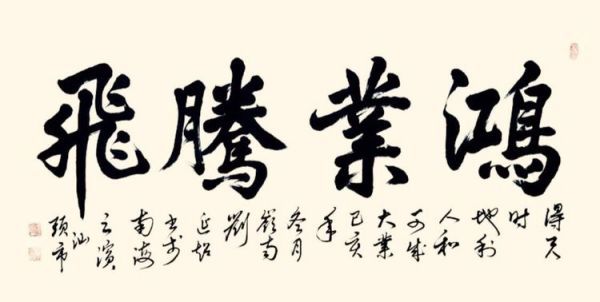 鴻業騰飛
得天
时
地利
人和
可成
大業
己亥
年
冬月
嶺南
劉
延
书于
南海
之濱
汕
頭市